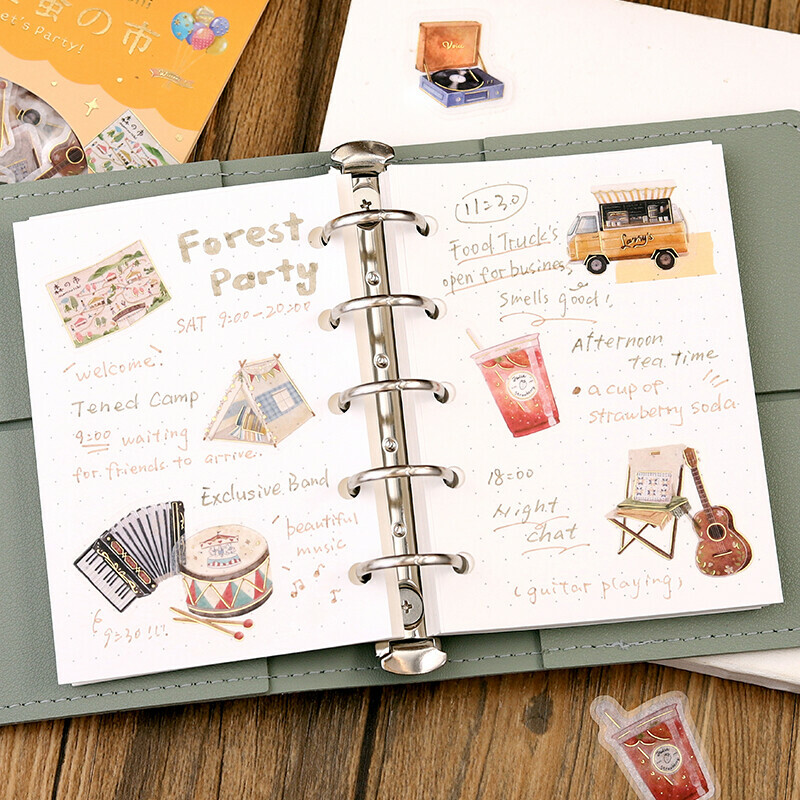 の市
Let's Party!
森の市
Voice
Forest
Party
SAT 9:00-20:00
welcome!
Tened Camp
9:00 waiting
for friends to arrive.
Exclusive Band
beautiful
music
9:30!!!
11:30
Food Truck's
open for business,
Smells good!
Afternoon
tea time
a cup of
strawberry soda
18:00
Night
chat
(guitar playing)